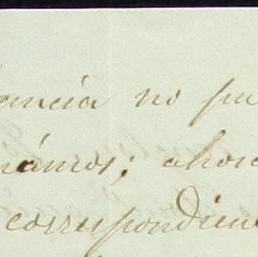 ancia no pu
námos; ahor
correspondien